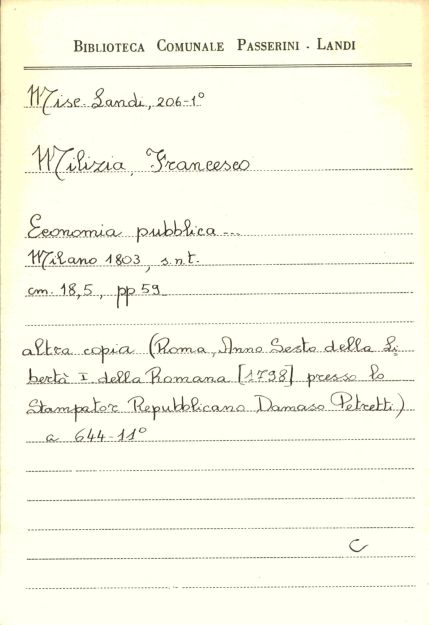 BIBLIOTECA COMUNALE PASSERINI - LANDI
Misc. Landi, 206-1°
Milizia, Francesco
Economia pubblica ...
Milano 1803, s.n.t.
cm. 18,5, pp 59
altra copia (Roma, Anno Sesto della Li=
bertà I. della Romana [1798] presso lo
Stampator Repubblicano Damaso Petretti)
a 644-11°
C